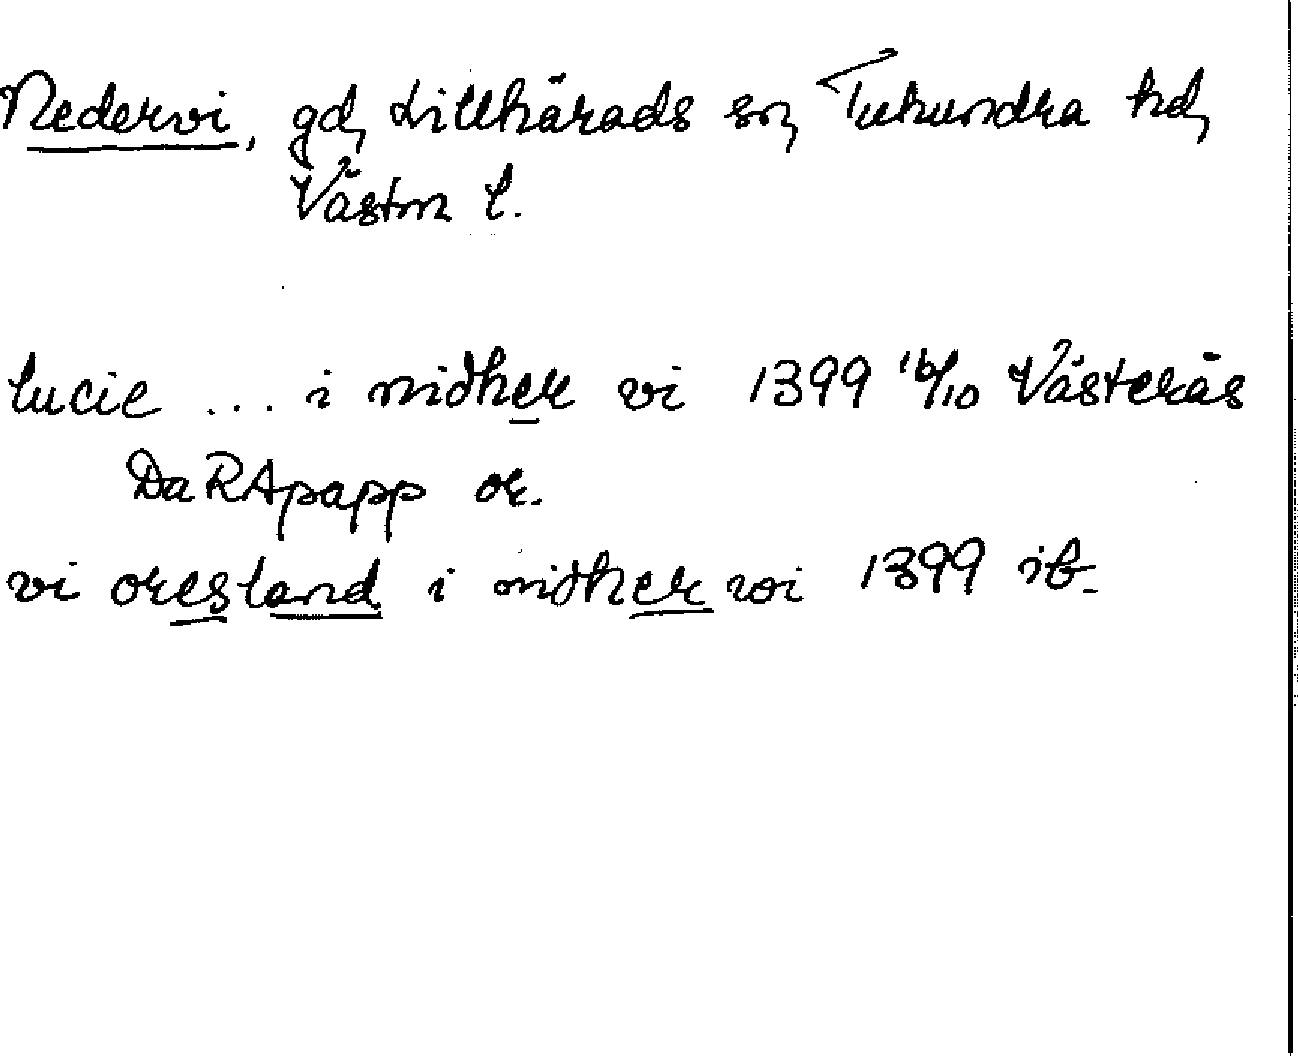 Nedervi, gd, Lillhärads sn, Tuhundra hd,
Västm l.
lucie ... i nidher vi 1399 16/10 Västerås
Da RApapp or.
vi øresland i nidher wi 1399 ib.